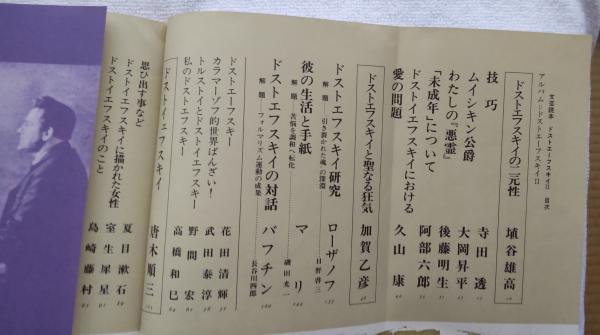 文芸読本 ドストエーフスキイⅡ 目次
アルバム=ドストエーフスキイⅡ
ドストエフスキイの二元性 埴谷雄高
技巧 寺田透
ムイシキン公爵 大岡昇平
わたしの『悪霊』 後藤明生
『未成年』について 阿部六郎
ドストイエフスキイにおける
愛の問題 久山康
ドストエフスキイと聖なる狂気 加賀乙彦
ドストエフスキイ研究 ローザノフ
解題──引き裂かれた魂の深淵 日野啓三
彼の生活と手紙 マリ
解題──苦悩を調和へ転化 磯田光一
ドストエフスキイの対話 バフチン
解題──フォルマリズム運動の成果 長谷川四郎
ドストエーフスキー 花田清輝
カラマーゾフ的世界ばんざい! 武田泰淳
トルストイとドストイエフスキー 野間宏
私のドストエフスキー 高橋和巳
ドストイエフスキイ 唐木順三
思ひ出す事など 夏目漱石
ドストイエフスキイに描かれた女性 室生犀星
ドストイエフスキイのこと 島崎藤村